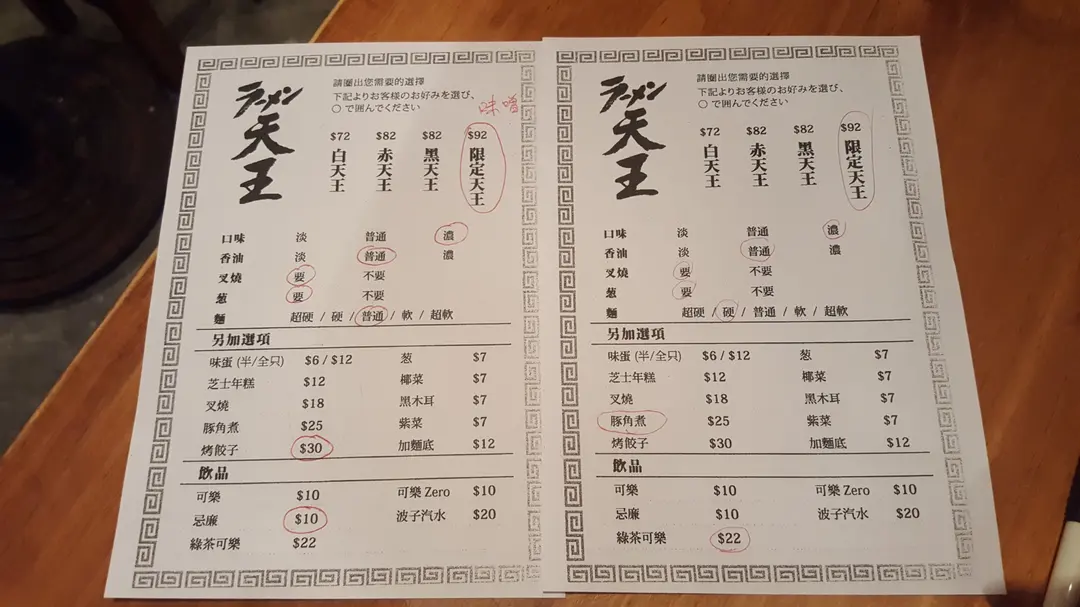 ラーメン
天王
請圈出您需要的選擇
下記よりお客様のお好みを選び、
○で囲んでください
味噌
$72 $82 $82 $92
白天王 赤天王 黑天王 限定天王
口味 淡 普通 濃
香油 淡 普通 濃
叉燒 要 不要
葱 要 不要
麵 超硬 / 硬 / 普通 / 軟 / 超軟
另加選項
味蛋 (半/全只) $6 / $12 葱 $7
芝士年糕 $12 椰菜 $7
叉燒 $18 黑木耳 $7
豚角煮 $25 紫菜 $7
烤餃子 $30 加麵底 $12
飲品
可樂 $10 可樂 Zero $10
忌廉 $10 波子汽水 $20
綠茶可樂 $22
ラーメン
天王
請圈出您需要的選擇
下記よりお客様のお好みを選び、
○で囲んでください
$72 $82 $82 $92
白天王 赤天王 黑天王 限定天王
口味 淡 普通 濃
香油 淡 普通 濃
叉燒 要 不要
葱 要 不要
麵 超硬 / 硬 / 普通 / 軟 / 超軟
另加選項
味蛋 (半/全只) $6 / $12 葱 $7
芝士年糕 $12 椰菜 $7
叉燒 $18 黑木耳 $7
豚角煮 $25 紫菜 $7
烤餃子 $30 加麵底 $12
飲品
可樂 $10 可樂 Zero $10
忌廉 $10 波子汽水 $20
綠茶可樂 $22